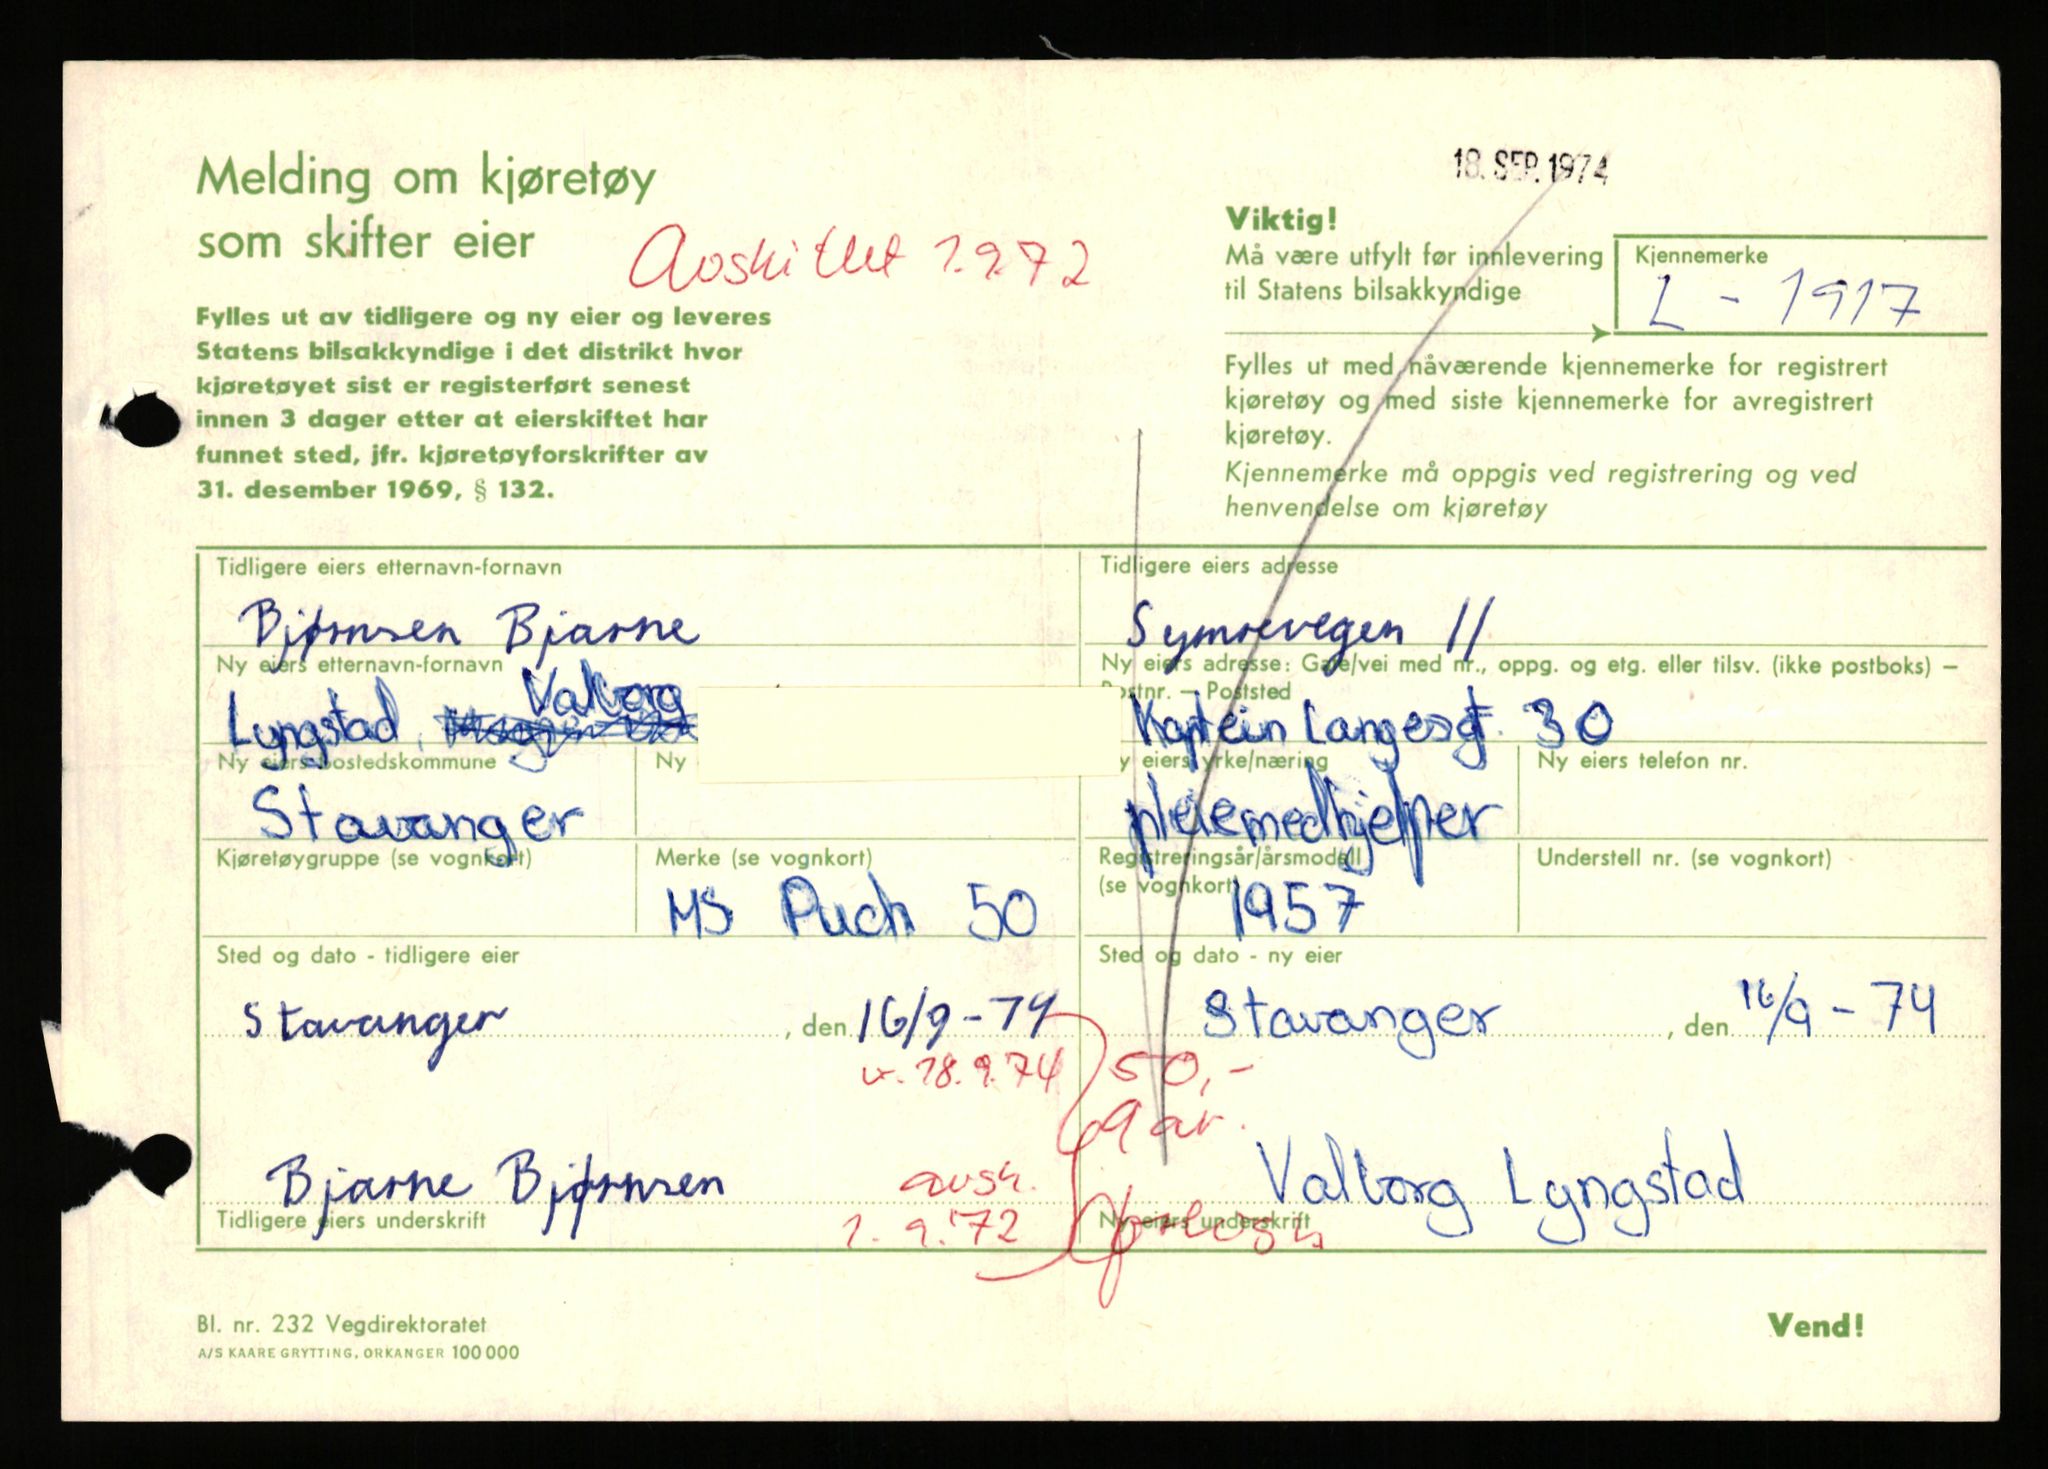 Melding om kjøretøy
som skifter eier
Avskiltet 1.9.72
18. SEP. 1974
Fylles ut av tidligere og ny eier og leveres
Statens bilsakkyndige i det distrikt hvor
kjøretøyet sist er registerført senest
innen 3 dager etter at eierskiftet har
funnet sted, jfr. kjøretøyforskrifter av
31. desember 1969, § 132.
Viktig!
Må være utfylt før innlevering
til Statens bilsakkyndige
Kjennemerke
L - 1917
Fylles ut med nåværende kjennemerke for registrert
kjøretøy og med siste kjennemerke for avregistrert
kjøretøy.
Kjennemerke må oppgis ved registrering og ved
henvendelse om kjøretøy
Tidligere eiers etternavn-fornavn
Bjørnsen Bjarne
Tidligere eiers adresse
Symrevegen 11
Ny eiers etternavn-fornavn
Valborg
Lyngstad,
Ny eiers adresse: Gate/vei med nr., oppg. og etg. eller tilsv. (ikke postboks) –
Postnr. — Poststed
Kaptein Langesgt. 30
Ny eiers bostedskommune
Stavanger
Ny
Ny eiers yrke/næring
pleiemedhjelper
Ny eiers telefon nr.
Kjøretøygruppe (se vognkort)
Merke (se vognkort)
MS Puch 50
Registreringsår/årsmodell
(se vognkort)
1957
Understell nr. (se vognkort)
Sted og dato - tidligere eier
Stavanger, den 16/9 - 74
Sted og dato - ny eier
Stavanger, den 16/9 - 74
18.9.74
50,-
Bjarne Bjørnsen
Tidligere eiers underskrift
avsk.
1.9.72
Valborg Lyngstad
Ny eiers underskrift
Bl. nr. 232 Vegdirektoratet
A/S KAARE GRYTTING, ORKANGER 100 000
Vend!